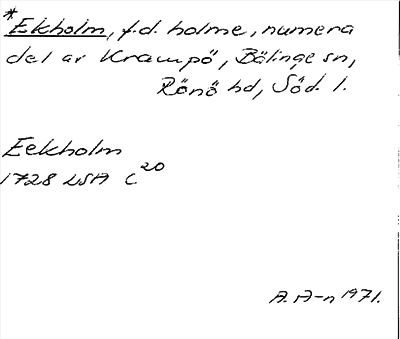 *Ekholm, f.d. holme, numera
del av Krampö, Bälinge sn,
Rönö hd, Söd. l.
Eekholm
1728 LSA C 20
A. A-n 1971.